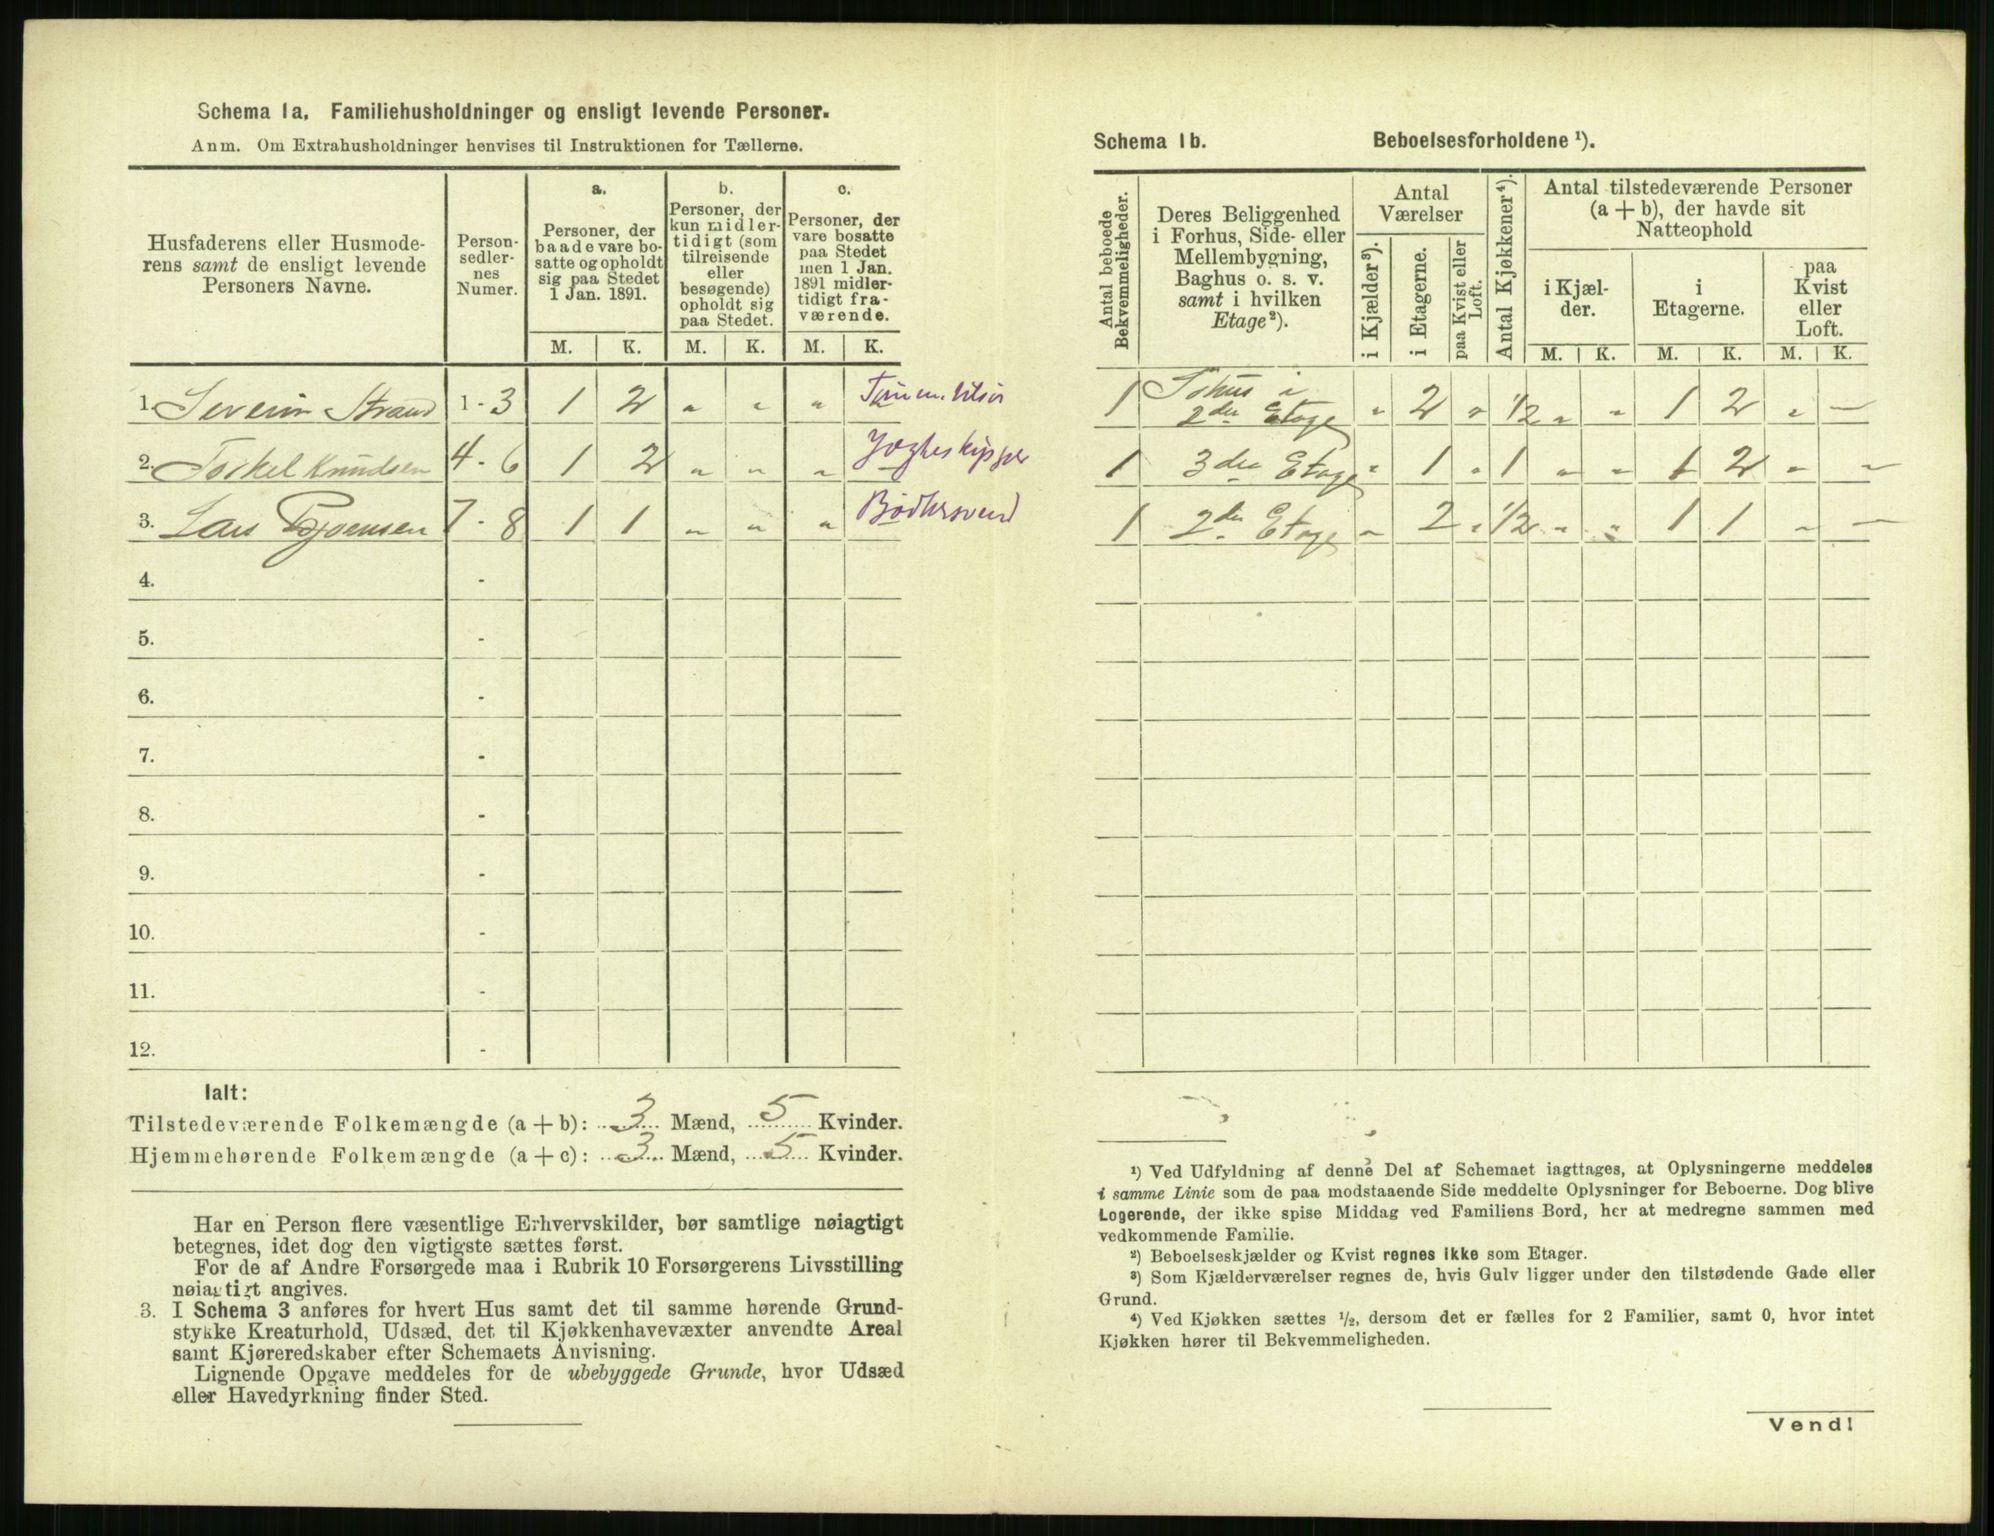 Schema 1a. Familiehusholdninger og ensligt levende Personer.
Anm. Om Extrahusholdninger henvises til Instruktionen for Tællerne.
Husfaderens eller Husmode-
rens samt de ensligt levende
Personers Navne.
Person-
sedler-
nes
Numer.
a.
Personer, der
baade vare bo-
satte og opholdt
sig paa Stedet
1 Jan. 1891.
b.
Personer, der
kun midler-
tidigt (som
tilreisende
eller
besøgende)
opholdt sig
paa Stedet.
c.
Personer, der
vare bosatte
paa Stedet
men 1 Jan.
1891 midler-
tidigt fra-
værende.
M. K. M. K. M. K.
1. Severin Strand 1 - 3 1 2 " " "
2. Torkel Knudsen 4 - 6 1 2 " " " Jægteskipper
3. Lars 7 - 8 1 1 " " " Bødkersvend
4. -
5. -
6. -
7. -
8. -
9. -
10. -
11. -
12. -
Ialt:
Tilstedeværende Folkemængde (a + b): 3 Mænd, 5 Kvinder.
Hjemmehørende Folkemængde (a + c): 3 Mænd, 5 Kvinder.
Har en Person flere væsentlige Erhvervskilder, bør samtlige nøiagtigt
betegnes, idet dog den vigtigste sættes først.
For de af Andre Forsørgede maa i Rubrik 10 Forsørgerens Livsstilling
nøiagtigt angives.
3. I Schema 3 anføres for hvert Hus samt det til samme hørende Grund-
stykke Kreaturhold, Udsæd, det til Kjøkkenhavevæxter anvendte Areal
samt Kjøreredskaber efter Schemaets Anvisning.
Lignende Opgave meddeles for de ubebyggede Grunde, hvor Udsæd
eller Havedyrkning finder Sted.
Schema 1b. Beboelsesforholdene ¹).
Antal beboede
Bekvemmeligheder.
Deres Beliggenhed
i Forhus, Side- eller
Mellembygning,
Baghus o. s. v.
samt i hvilken
Etage²).
Antal
Værelser
i Kjælder³).
i Etagerne.
paa Kvist eller
Loft.
Antal Kjøkkener⁴).
Antal tilstedeværende Personer
(a + b), der havde sit
Natteophold
i Kjæl-
der.
i
Etagerne.
paa
Kvist
eller
Loft.
M. K. M. K. M. K.
1 i
2den Etage " 2 " 1/2 " " 1 2 " —
1 3die Etage " 1 " 1 " " 1 2 " "
1 2den Etage " 2 " 1/2 " " 1 1 " —
¹) Ved Udfyldning af denne Del af Schemaet iagttages, at Oplysningerne meddeles
i samme Linie som de paa modstaaende Side meddelte Oplysninger for Beboerne. Dog blive
Logerende, der ikke spise Middag ved Familiens Bord, her at medregne sammen med
vedkommende Familie.
²) Beboelseskjælder og Kvist regnes ikke som Etager.
³) Som Kjælderværelser regnes de, hvis Gulv ligger under den tilstødende Gade eller
Grund.
⁴) Ved Kjøkken sættes ½, dersom det er fælles for 2 Familier, samt 0, hvor intet
Kjøkken hører til Bekvemmeligheden.
Vend!